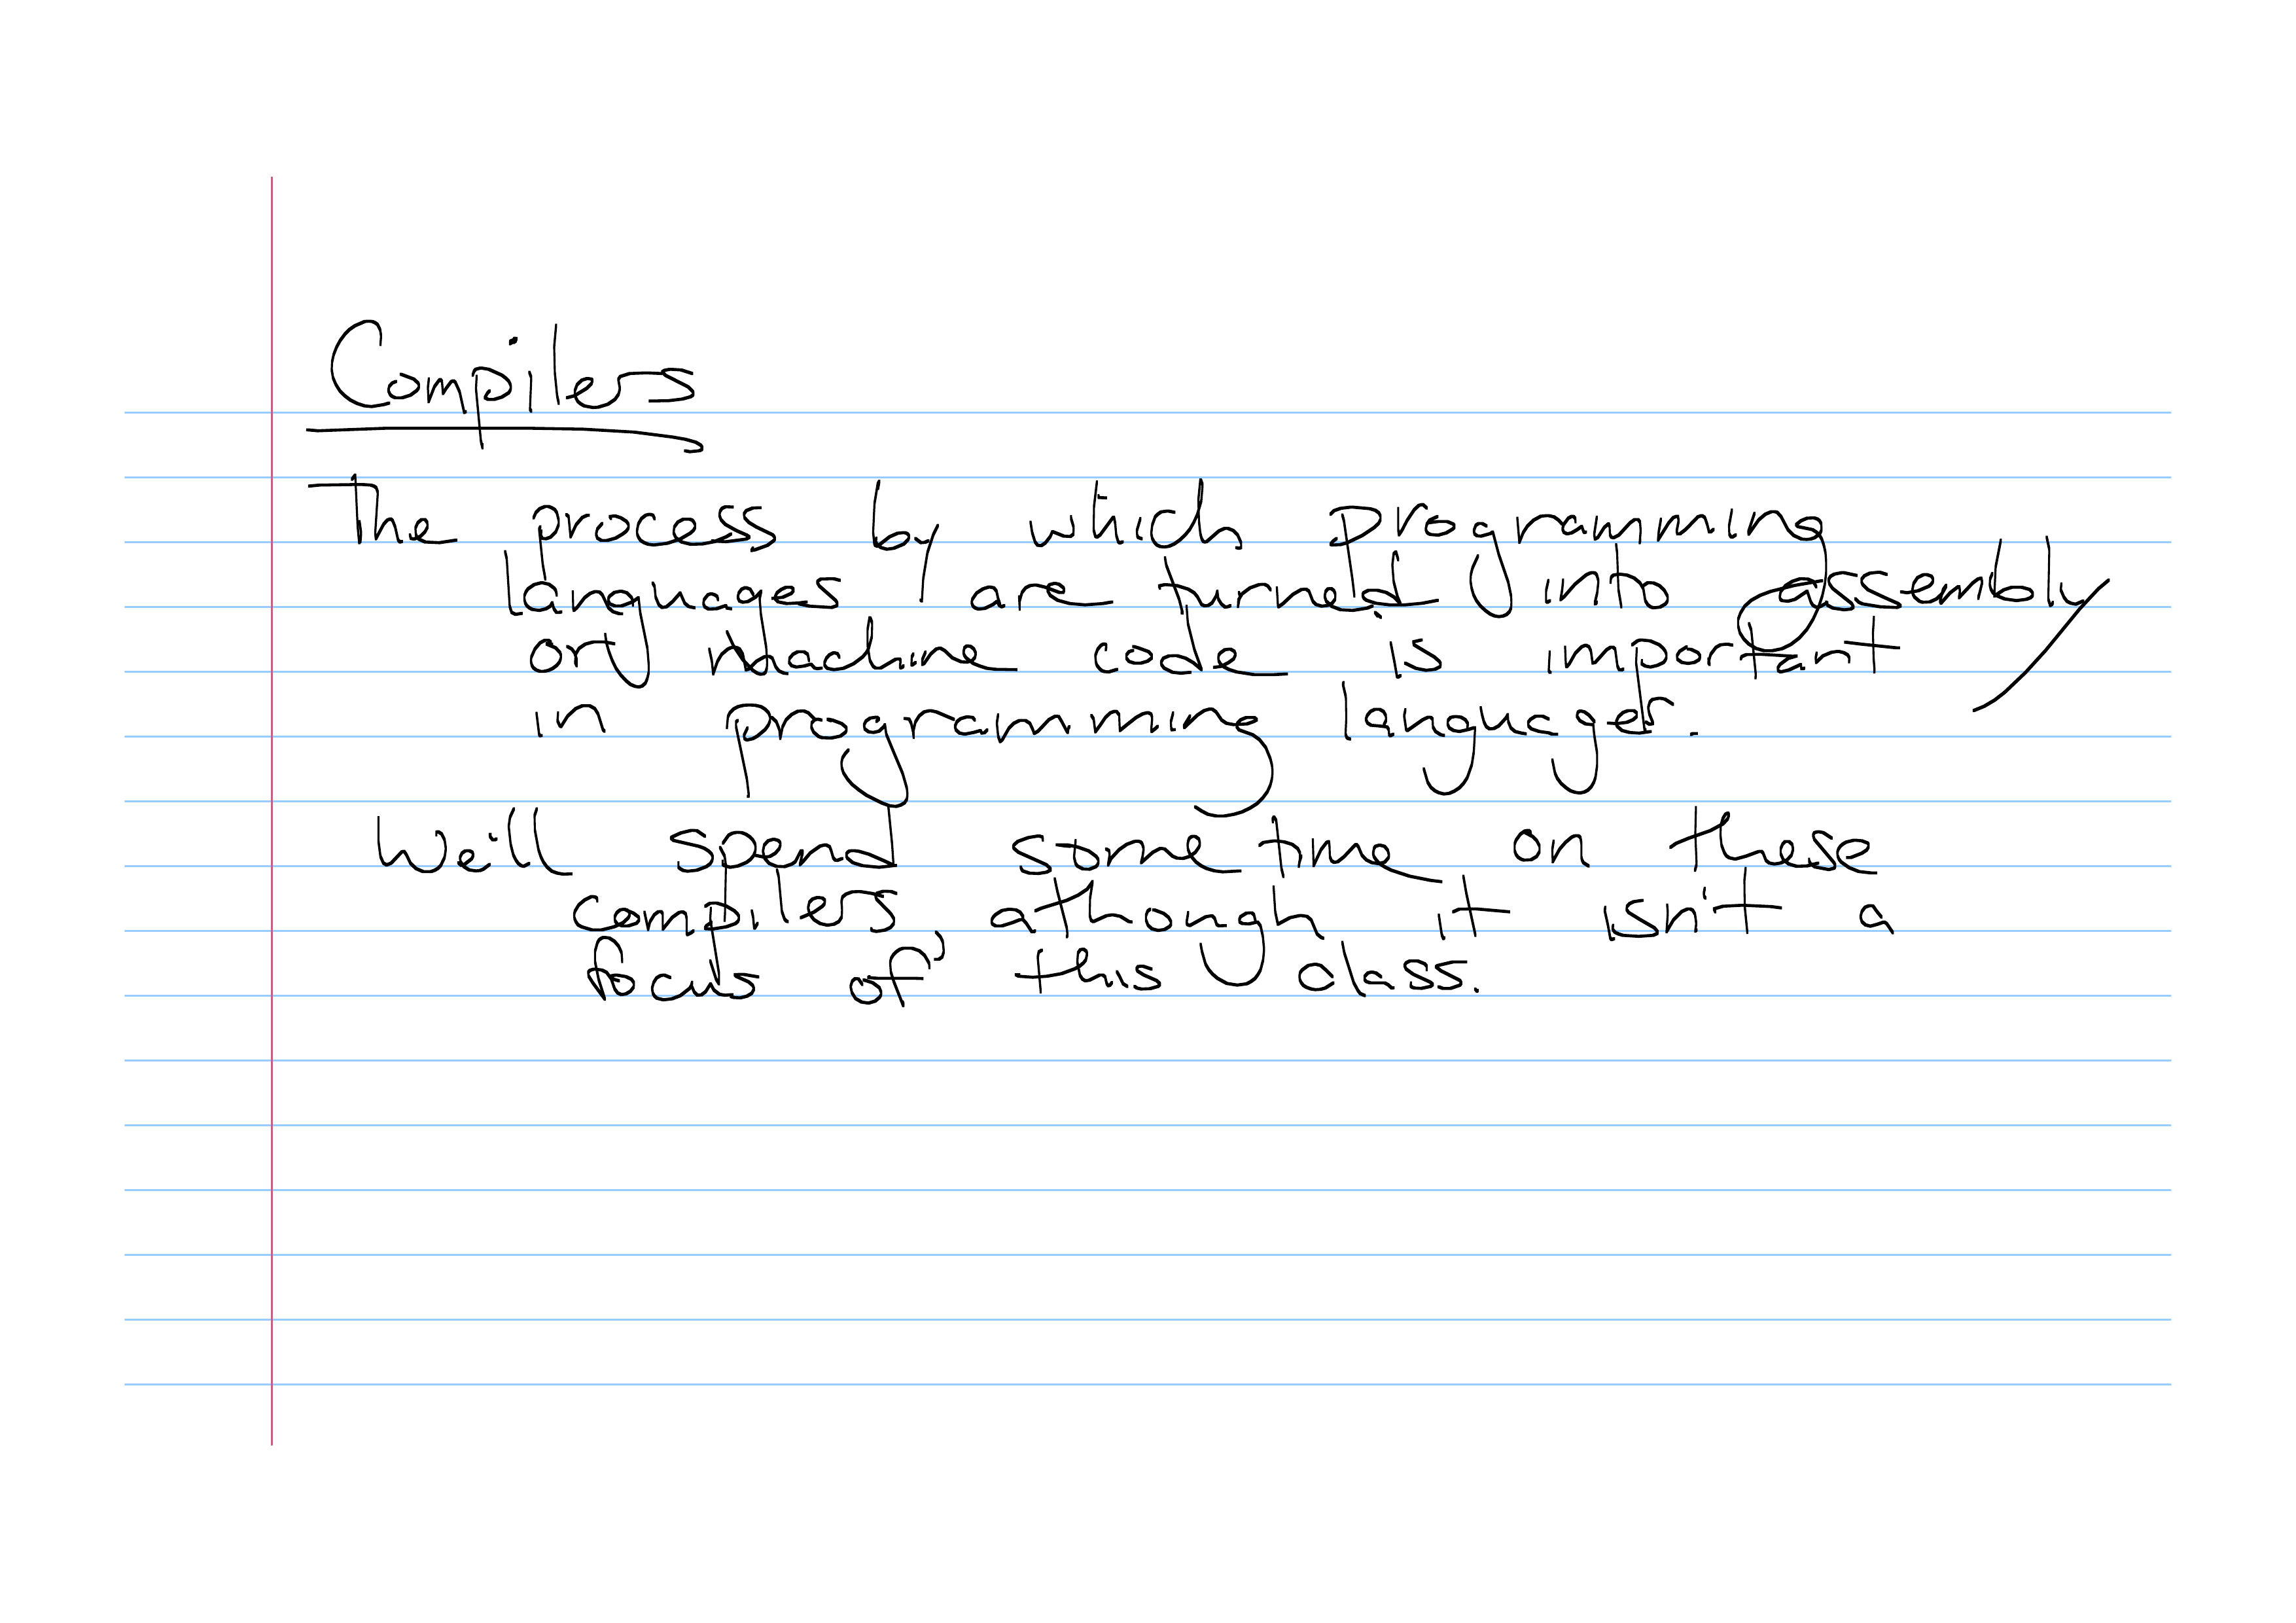 Compilers
The process by which programming
languages are turned into assembly
or machine code is important
in programming languages.
We'll spend some time on these
compilers, athough it isn't a
focus of this class.